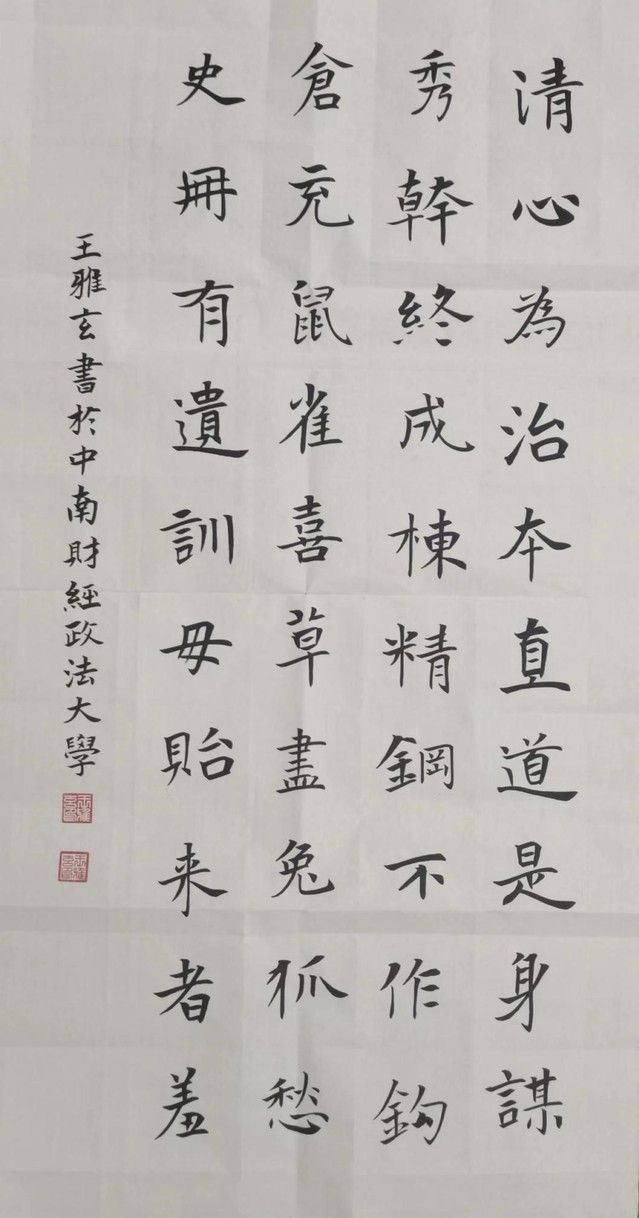 清心為治本直道是身謀
秀幹終成棟精鋼不作鈎
倉充鼠雀喜草盡兔狐愁
史冊有遺訓毋貽来者羞
王雅玄書於中南財經政法大學